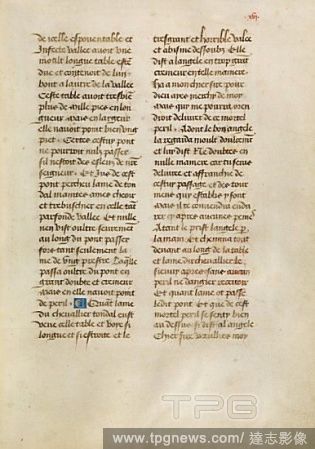 xiii
de icelle espouentable et
Infecte vallee auoit vne
moult longue table estẽ
due et contenoit de lun
bout a lautre de la vallee
Ceste table auoit tresbiẽ
plus de mille pies en lon
gueur Mais en largeur
elle nauoit point bien vng
piet Certes cestui pont
ne pouoit nulz passer
sil nestoit des esleus de nr̃e
seigneur Et Jus de cest
pont percheu lame de ton
dal maintes ames cheoir
et trebuschier en celle tant
parfonde vallee Et nulle
nen vist oultre seurement
au long du pont passer
fors tant seulement la
me de vng prestre Laq̃lle
passa oultre du pont en
grant doubte et cremeur
Mais en elle nauoit point
de peril Et Quant lame
du cheuallier tondal eust
veue celle table et voye si
longue et si estroite et le
tresgrant et horrible vale
et abisme dessoubz Elle
dist a langele en trop grant
cremeur en telle maniere
Ha a moncheir sire pour
dieu aies merchi de moy
Mais qui me pourra ou en
doit deliurer de ce mortel
peril Adont le bon angele
la regarda moult doulcement
et lui dist Ne doubtes en
nulle maniere car tu seras
deliuree et affranchie de
cestui passage et des tour
mens quy establis y sont
Mais il te conuendra endu
rer cy apres aucunes peines
Atant le prist langele p̃
la main Et chemina tout
deuant au long de la table
et lame du cheuallier le
sieuuy apres sans aucun
peril ne dangier rechepuoir
Et quant lame ot passe
ledit pont Et que de cest
mortel peril se senty bien
au dessus si dist a langele
Chier sire veullies moy
TPG
www.tpgnews.com / 達志影像